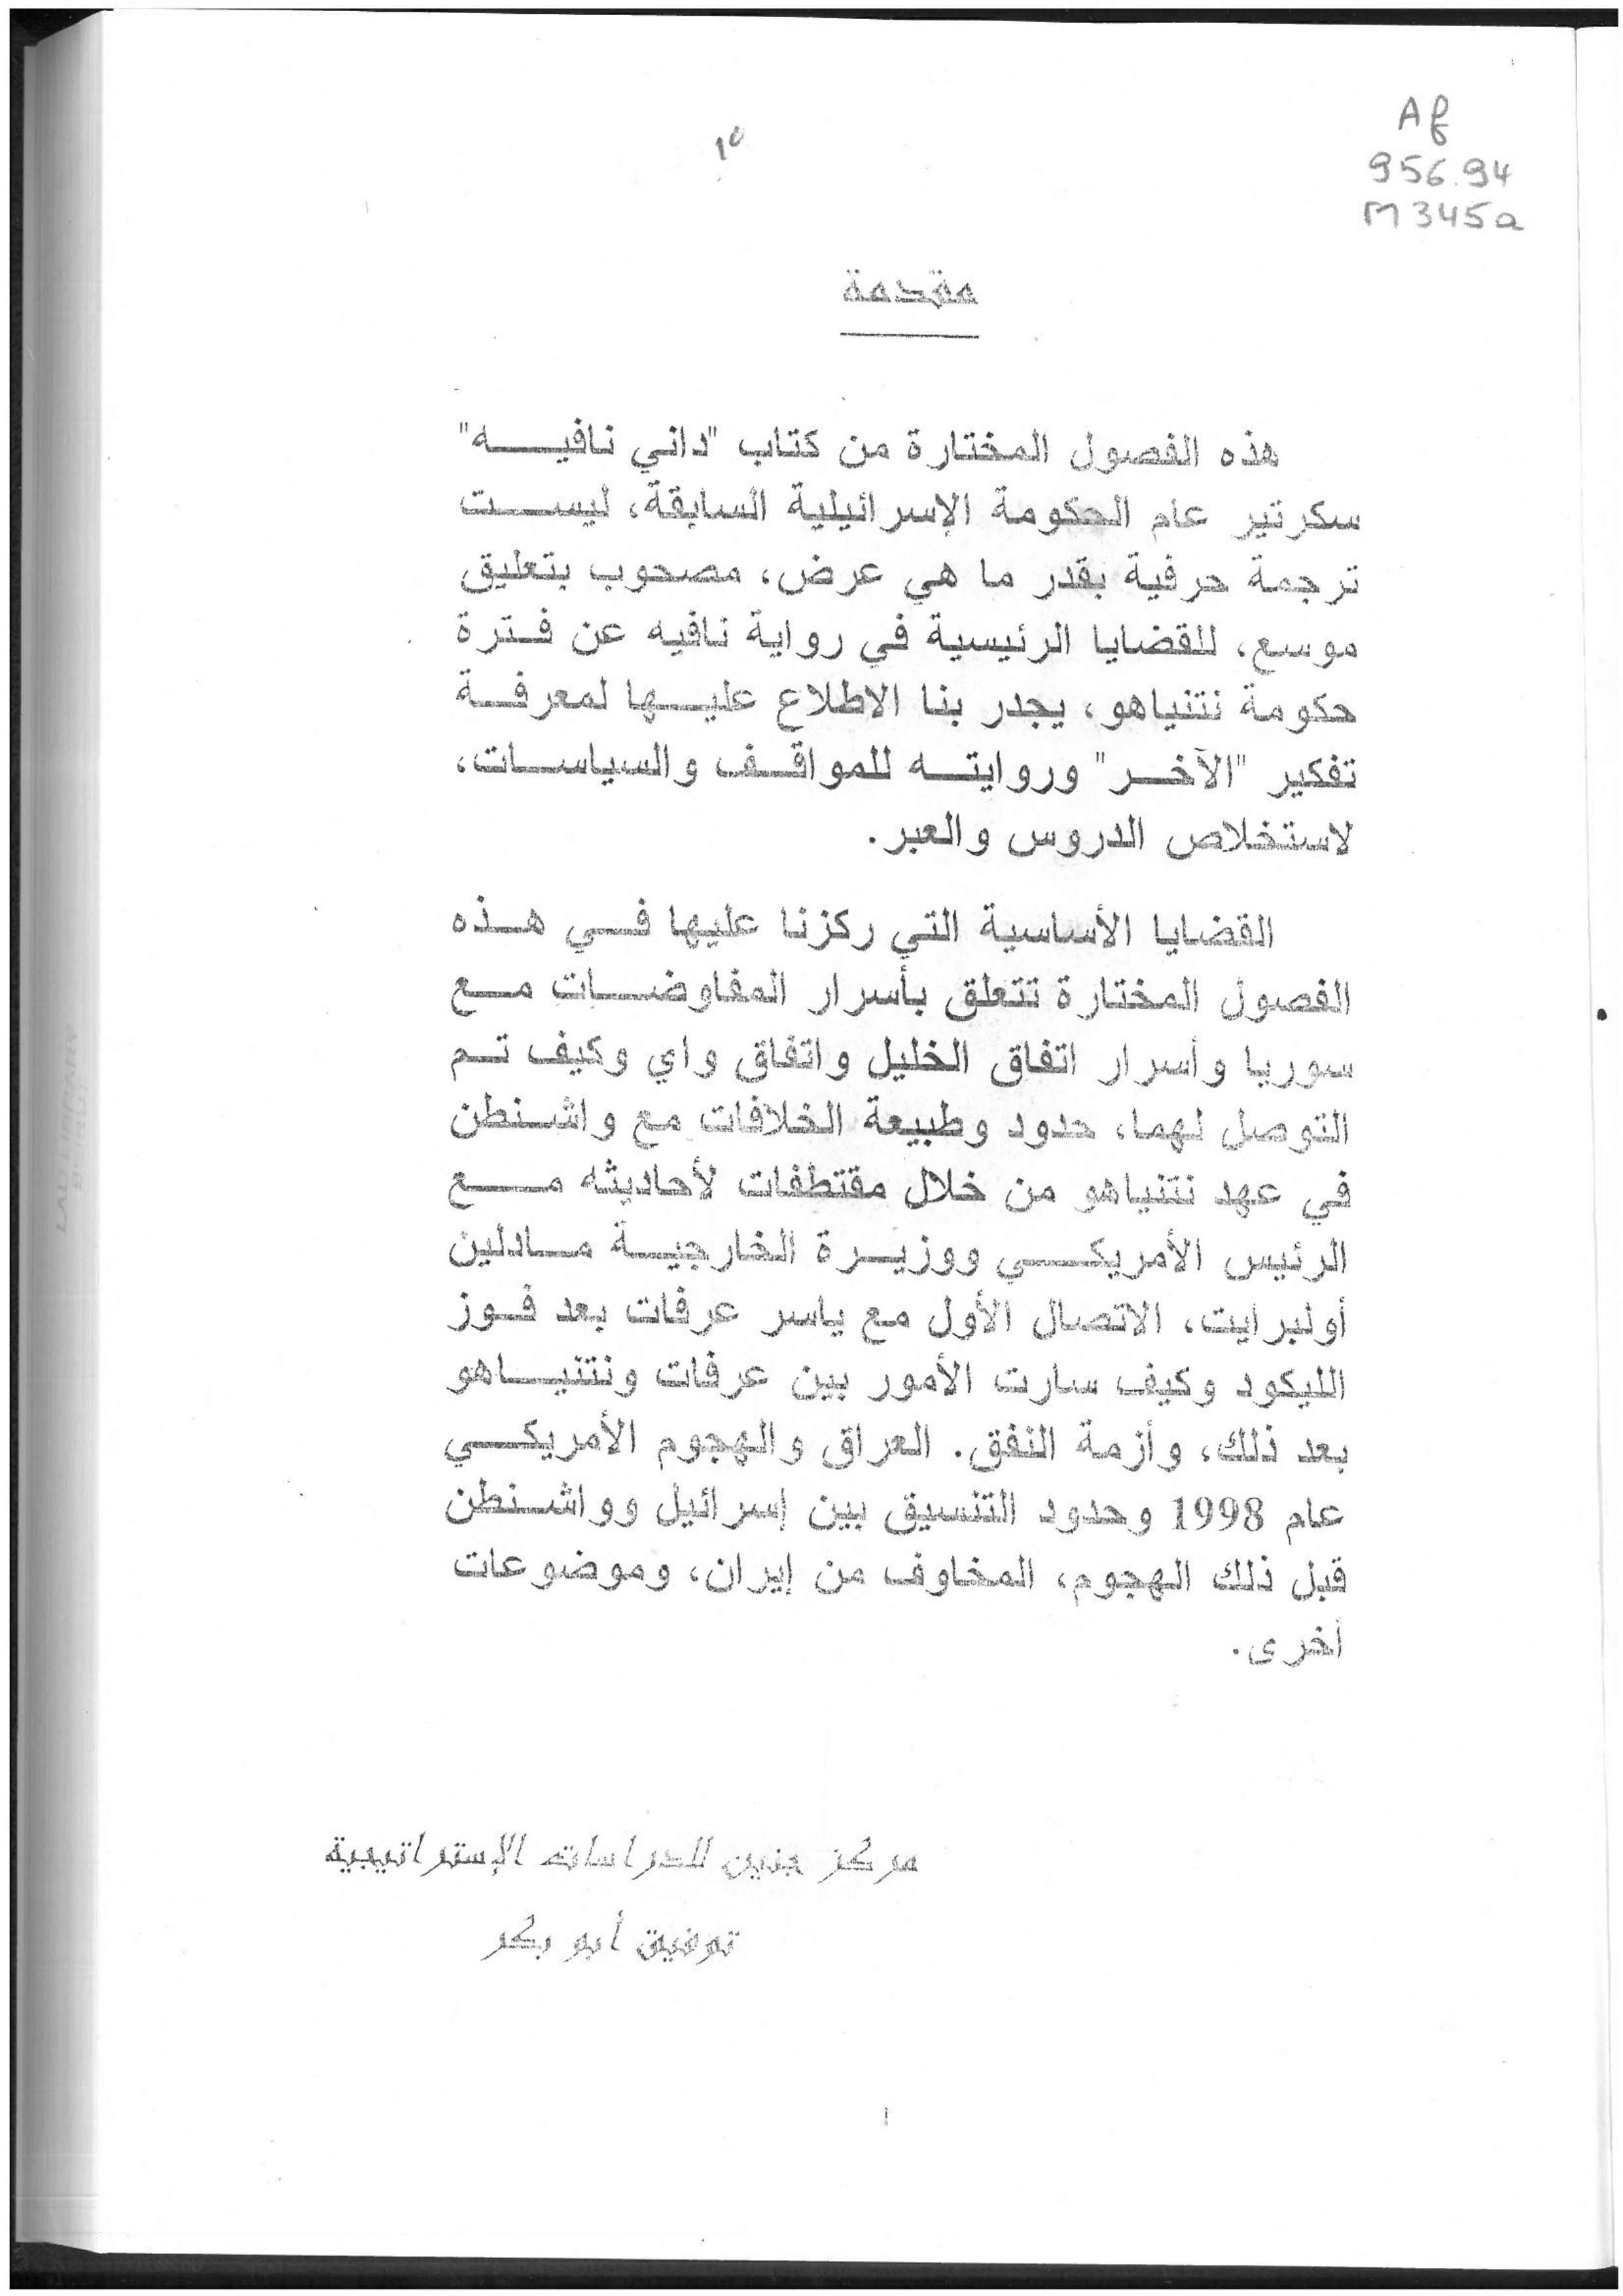 Af
956.94
M345a
مقدمة
هذه الفصول المختارة من كتاب "داني نافيه"
سكرتير عام الحكومة الإسرائيلية السابقة، ليست
ترجمة حرفية بقدر ما هي عرض، مصحوب بتعليق
موسع، للقضايا الرئيسية في رواية نافيه عن فترة
حكومة نتنياهو، يجدر بنا الاطلاع عليها لمعرفة
تفكير "الآخر" وروايته للمواقف والسياسات،
لاستخلاص الدروس والعبر.
القضايا الأساسية التي ركزنا عليها في هذه
الفصول المختارة تتعلق بأسرار المفاوضات مع
سوريا وأسرار اتفاق الخليل واتفاق واي وكيف تم
التوصل لهما، حدود وطبيعة الخلافات مع واشنطن
في عهد نتنياهو من خلال مقتطفات لأحاديثه مع
الرئيس الأمريكي ووزيرة الخارجية مادلين
أولبرايت، الاتصال الأول مع ياسر عرفات بعد فوز
الليكود وكيف سارت الأمور بين عرفات ونتنياهو
بعد ذلك، وأزمة النفق. العراق والهجوم الأمريكي
عام 1998 وحدود التنسيق بين إسرائيل وواشنطن
قبل ذلك الهجوم، المخاوف من إيران، وموضوعات
أخرى.
مركز جنين للدراسات الإستراتيجية
توفيق أبو بكر